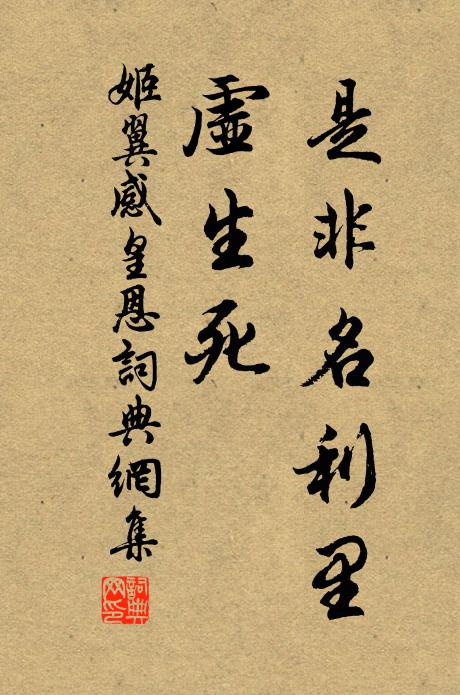 是非名利里
虛生死
姬翼感皇恩詞典網集
詞典网印